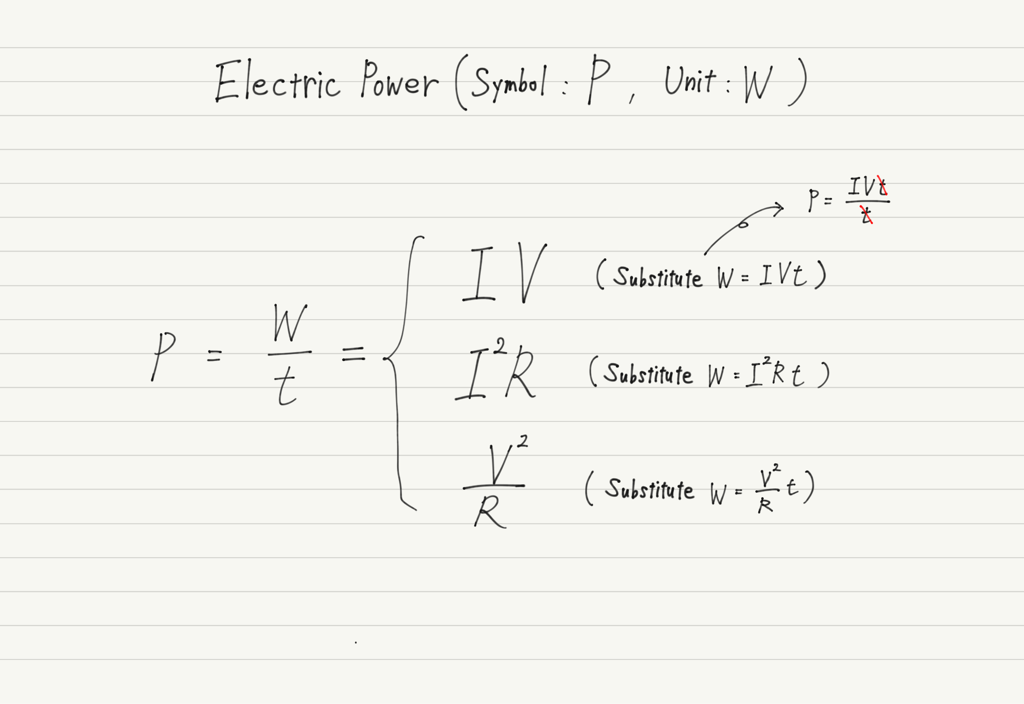 Electric Power (Symbol : P, Unit : W)
P = IVt/t
IV (Substitute W = IVt)
P = W/t = { I²R (Substitute W = I²Rt)
V²/R (Substitute W = V²/R t)